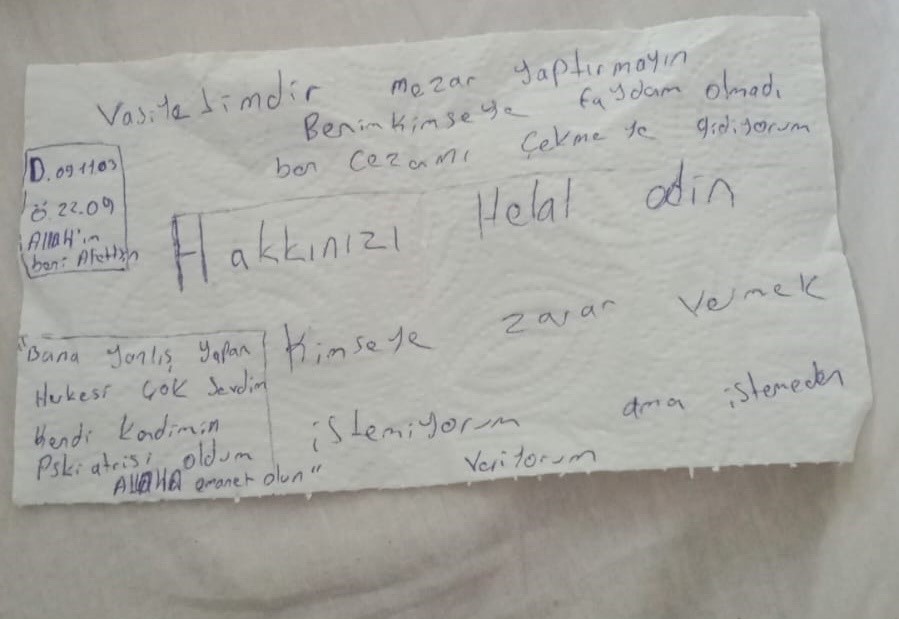 Vasiyetimdir mezar yaptırmayın
Benim kimseye faydam olmadı
ben cezamı çekmeye gidiyorum
D. 09 11 03
Ö 22.09
Allah'ın
beni Afettsin
Hakkınızı Helal edin
Kimseye zarar vermek
istemiyorum ama istemeden
veriyorum
"Bana yanlış yapan
Herkesi çok sevdim
Kendi kendimin
Pskiatrisi oldum
AllaHa emanet olun"